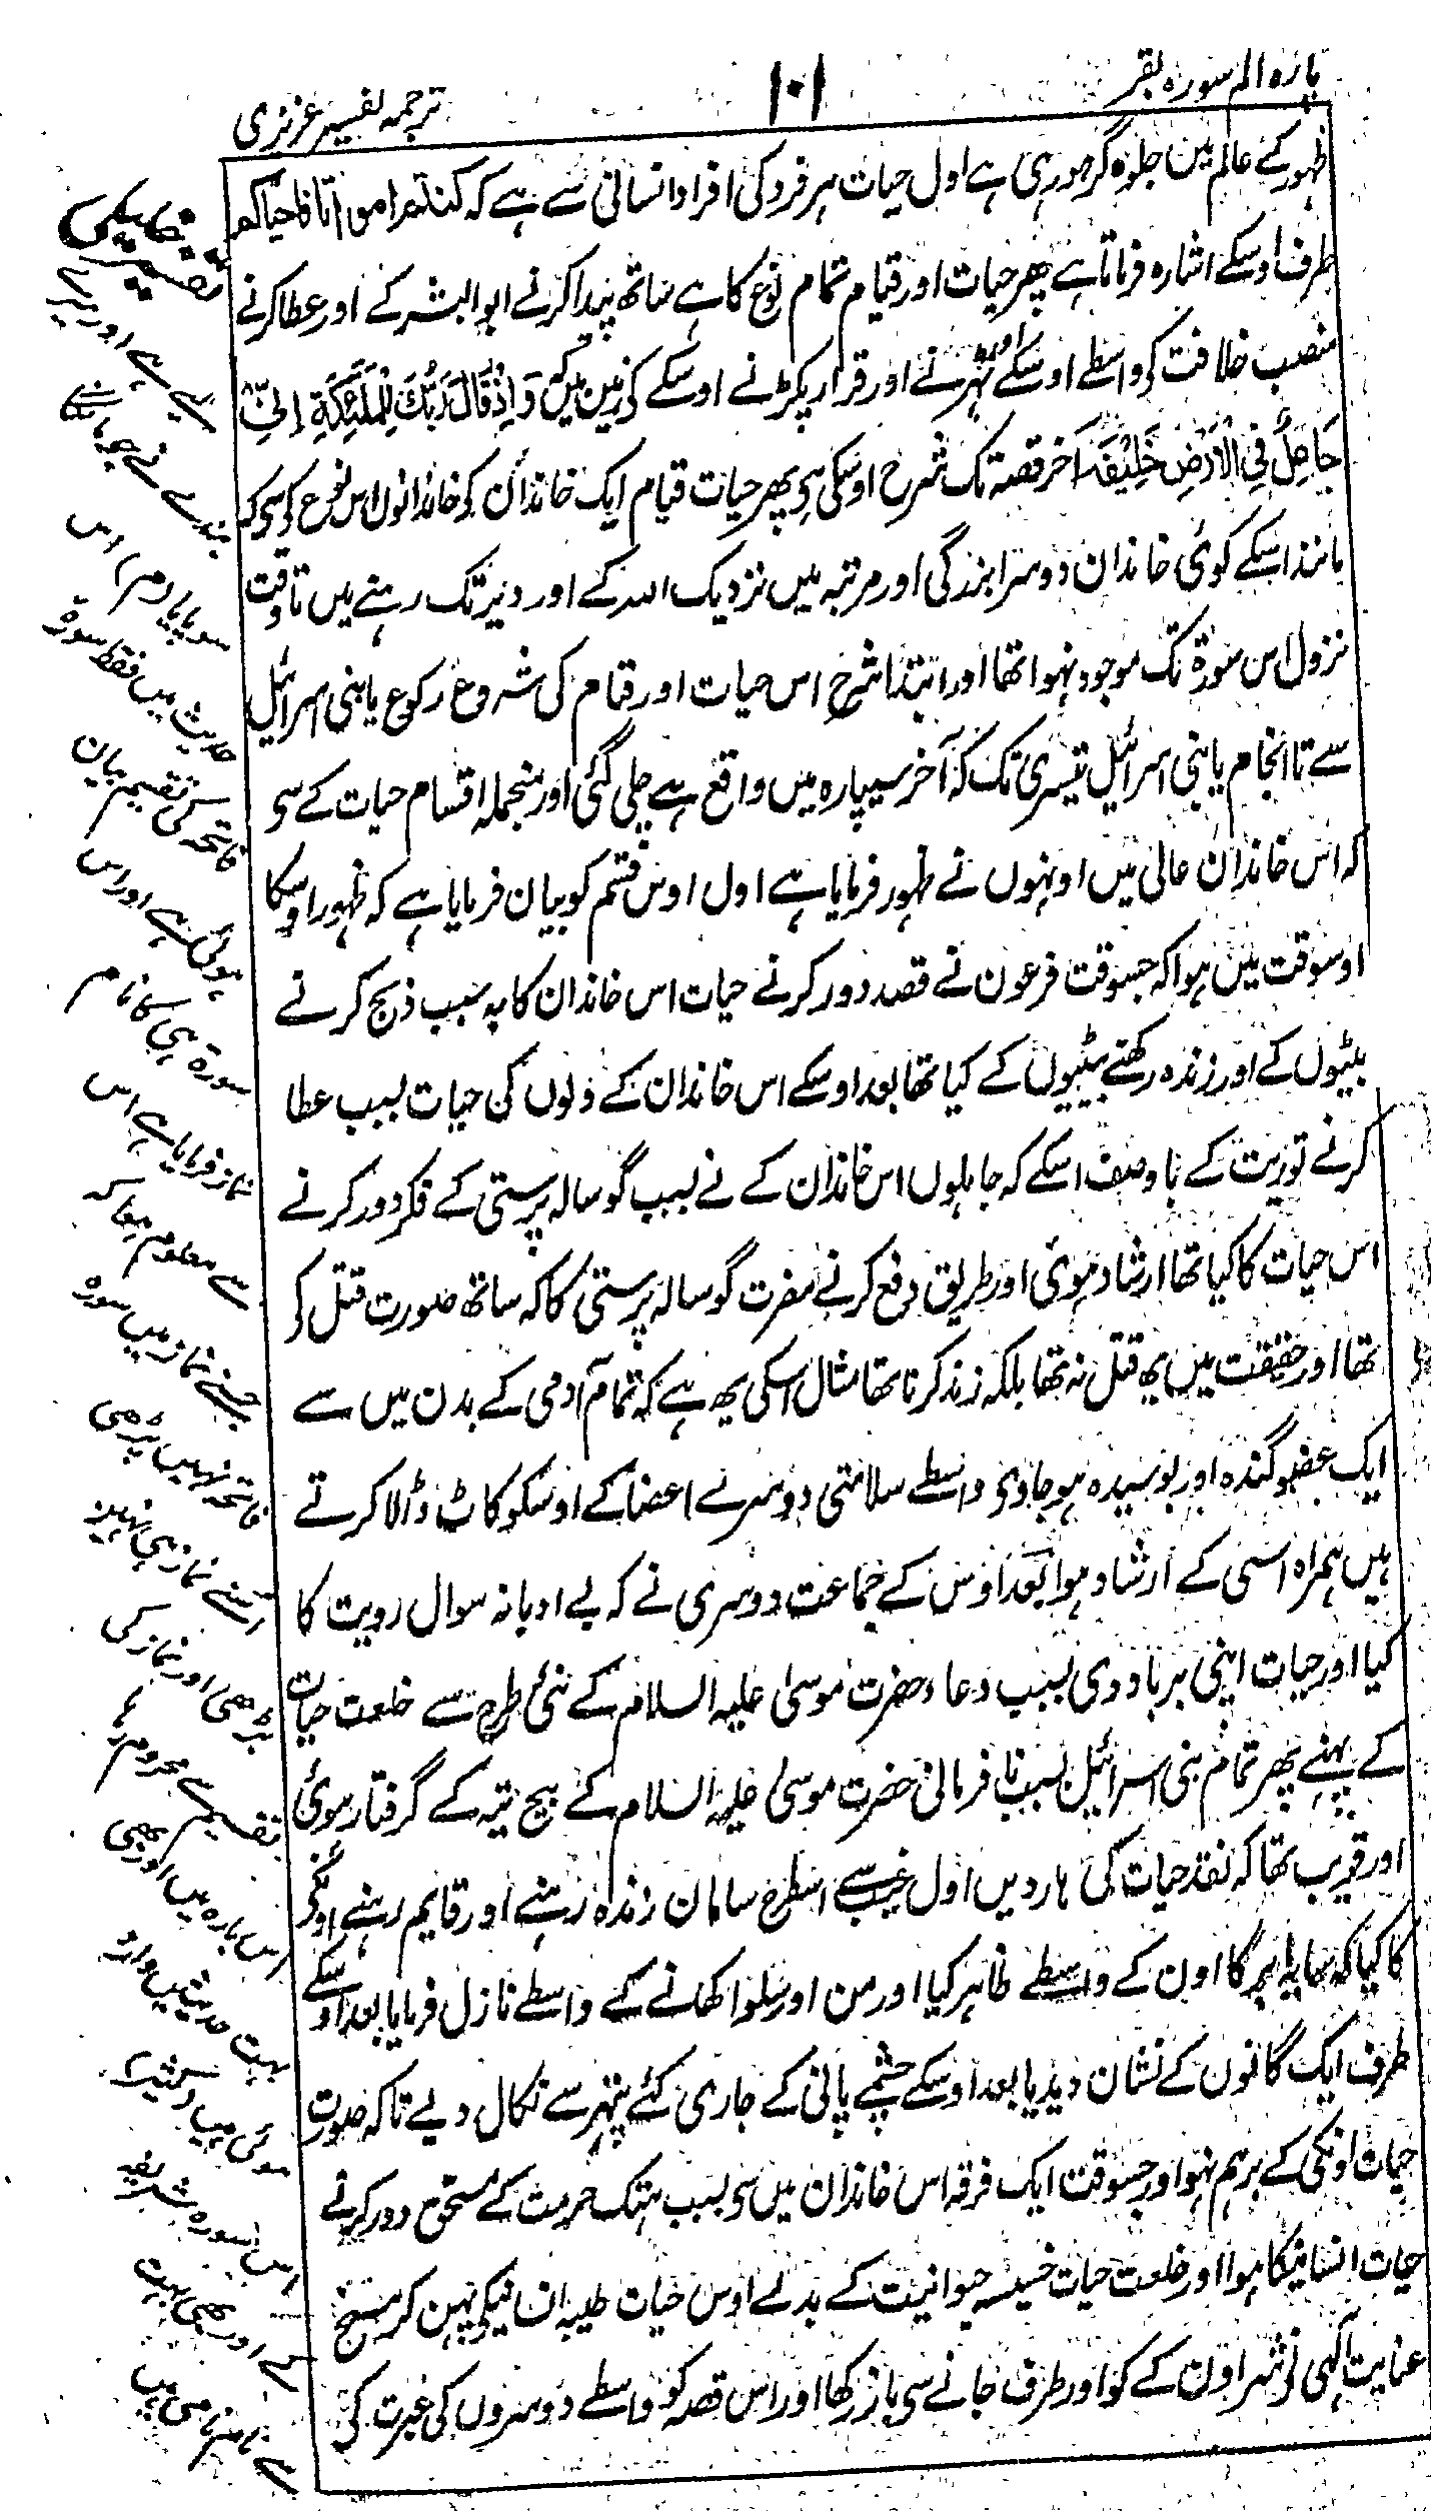 پارہ الم سورہ بقر
۱۰۱
ترجمہ تفسیر عزیزی
ظہور کے عالم مین جلوہ گر ہو رہی ہے اول حیات ہر فرد کی افراد انسانی سے ہے کہ کنتم امواتا فاحیاکم
طرف اوسکے اشارہ فرماتا ہے پھر حیات اور قیام تمام نوع کا ہے ساتھ پیدا کرنے ابو البشر کے اور عطا کرنے
منصب خلافت کو واسطے اوسکے اور ٹہرنے اور قرار پکڑنے اوسکے کو زمین میں کہ وَاِذْ قَالَ رَبُّكَ لِلْمَلٰٓئِكَةِ اِنِّیْ
جَاعِلٌ فِی الْاَرْضِ خَلِیْفَةً آخر قصہ تک شرح اوسکی ہی پھر حیات قیام ایک خاندان کو خاندانوں اس نوع کو سی کہ
مانند اسکے کوئی خاندان دوسرا بزرگی اور مرتبہ میں نزدیک اللہ کے اور دیر تک رہنے میں تا وقت
نزول اس سورۃ تک موجود نہوا تھا اور ابتدا شرح اس حیات اور قیام کی شروع رکوع یا بنی اسرائیل
سے تا انجام یا بنی اسرائیل تیسری تک کہ آخر سیپارہ میں واقع ہے چلی گئی اور منجملہ اقسام حیات کے سی
کہ اس خاندان عالی میں اونہوں نے ظہور فرمایا ہے اول اوس قسم کو بیان فرمایا ہے کہ ظہور اوسکا
اوسوقت میں ہوا کہ جسوقت فرعون نے قصد دور کرنے حیات اس خاندان کا بہ سبب ذبح کرنے
بیٹوں کے اور زندہ رکھنے بیٹیوں کے کیا تھا بعد اوسکے اس خاندان کے دلوں کی حیات بسبب عطا
کرنے توریت کے باوصف اسکے کہ جاہلوں اس خاندان کے نے بسبب گوسالہ پرستی کے فکر دور کرنے
اس حیات کا کیا تھا ارشاد ہوئی اور طریق دفع کرنے مضرت گوسالہ پرستی کا کہ ساتھ صورت قتل کر
تھا اور حقیقت میں یہ قتل نہ تھا بلکہ زندہ کرنا تھا مثال اسکی یہ ہے کہ تمام آدمی کے بدن میں سے
ایک عضو گندہ اور بوسیدہ ہو جاوی واسطے سلامتی دوسرے اعضا کے اوسکو کاٹ ڈالا کرتے
ہیں ہمراہ اسی کے ارشاد ہوا بعد اوس کے جماعت دوسری نے کہ بے ادبانہ سوال رویت کا
کیا اور حیات اپنی برباد دی بسبب دعاء حضرت موسیٰ علیہ السلام کے نئی طرح سے خلعت حیات
کے پہنے پھر تمام بنی اسرائیل بسبب نافرمانی حضرت موسیٰ علیہ السلام کے بیچ تیہ کے گرفتار ہوئی
اور قریب تھا کہ نقد حیات کی ہار دیں اول غیب سے اسطرح سامان زندہ رہنے اور قایم رہنے اونکے
کا کیا کہ سایہ ابر کا اون کے واسطے ظاہر کیا اور من اور سلوا کھانے کے واسطے نازل فرمایا بعد اوسکے
طرف ایک گانوں کے نشان دیدیا بعد اوسکے چشمے پانی کے جاری کئے پتہر سے نکال دیے تاکہ صورت
حیات اونکی کے برہم نہو اور جسوقت ایک فرقہ اس خاندان میں سی بسبب ہتک حرمت کے مستحق دور کرنے
حیات انسانیکا ہوا اور خلعت حیات خسیسہ حیوانیت کے بدلے اوس حیات طیبہ انسانیکی پہن کر مسخ
عنایت الٰہی نے شر اون کے کو اور طرف جانے سی باز رکھا اور اس قصہ کو واسطے دوسروں کی عبرت کی
تقسیم
سے ہے اور میرے
بندے نے جو مانگا
سو پایا اس
حدیث میں فقط سورۃ
فاتحہ کی تقسیم بیان
ہوئی ہے اور اس
سورۃ ہی کا نام
نماز فرمایا ہے اس
سے معلوم ہوا کہ
جسنے نماز میں سورہ
فاتحہ نہیں پڑھی
اسنے نماز ہی نہیں
پڑھی اور نماز کی
تقسیم سے محروم رہا
اس بارہ میں اور بھی
بہت حدیثیں وارد
ہوئی ہیں
اس سورہ شریفہ
کے اور بھی بہت
سے نام نامی ہیں